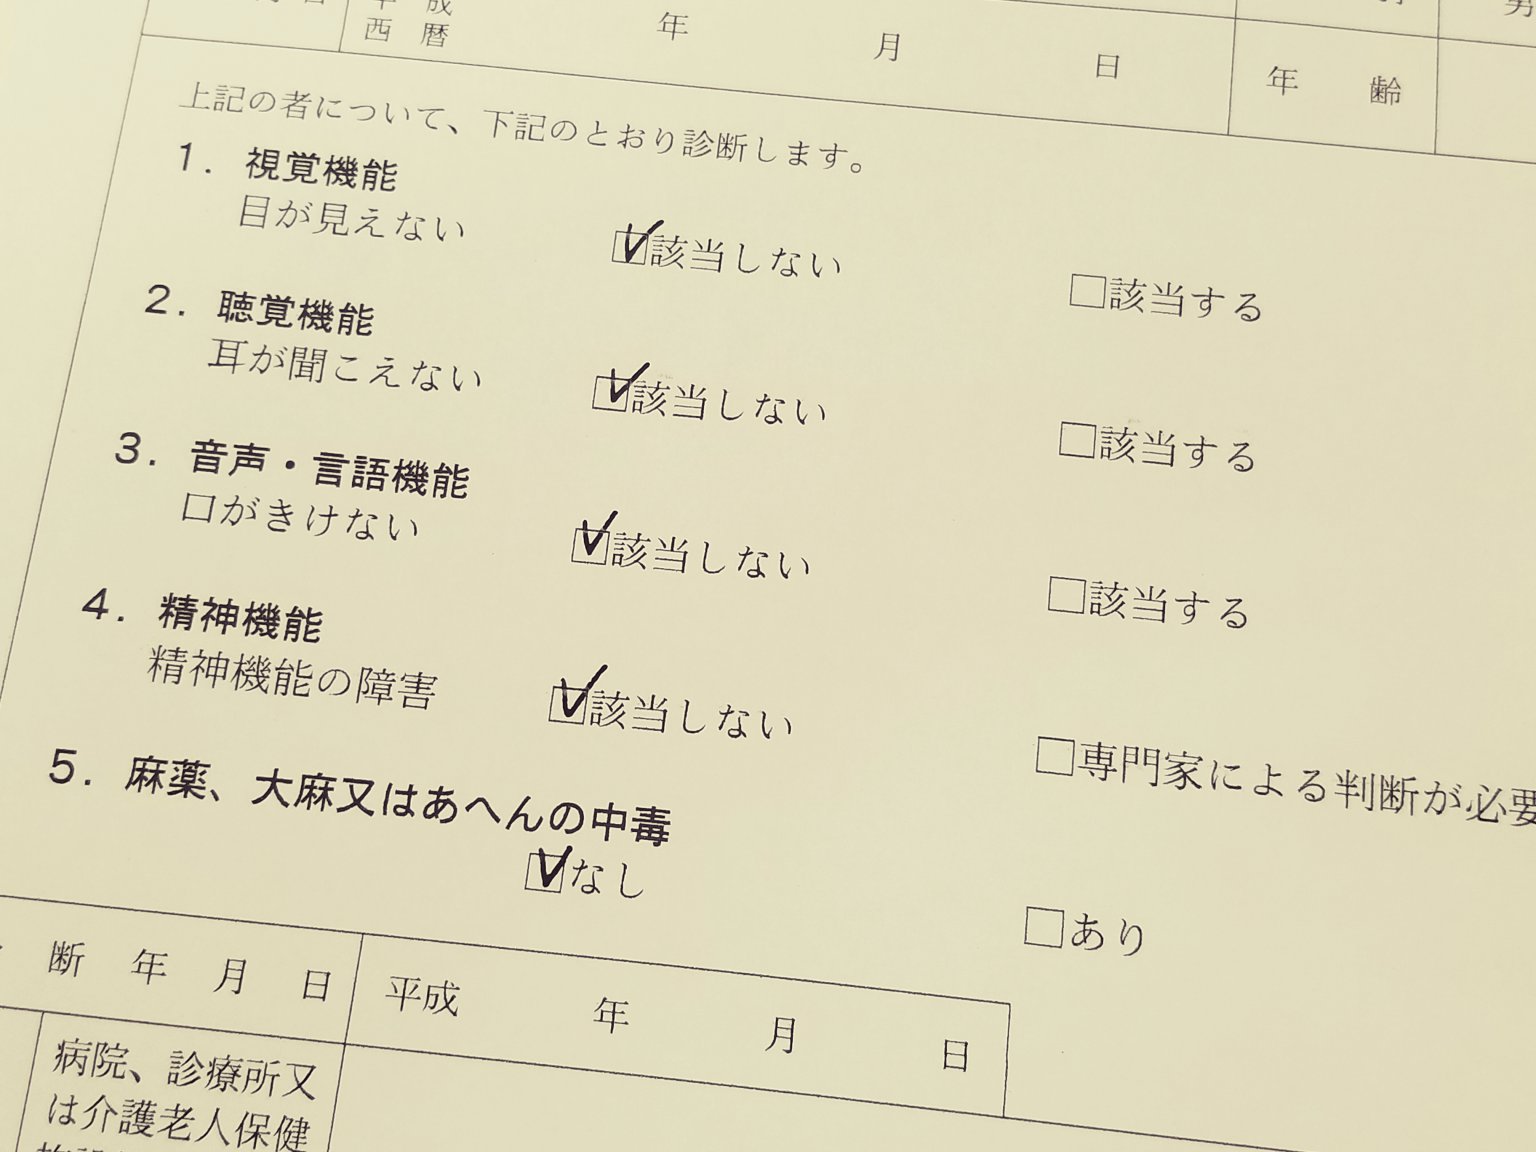 成
西暦 年 月 日 年齢
男
上記の者について、下記のとおり診断します。
1. 視覚機能
目が見えない ☑該当しない □該当する
2. 聴覚機能
耳が聞こえない ☑該当しない □該当する
3. 音声・言語機能
口がきけない ☑該当しない □該当する
4. 精神機能
精神機能の障害 ☑該当しない □専門家による判断が必要
5. 麻薬、大麻又はあへんの中毒
☑なし □あり
断年月日 平成 年 月 日
病院、診療所又
は介護老人保健